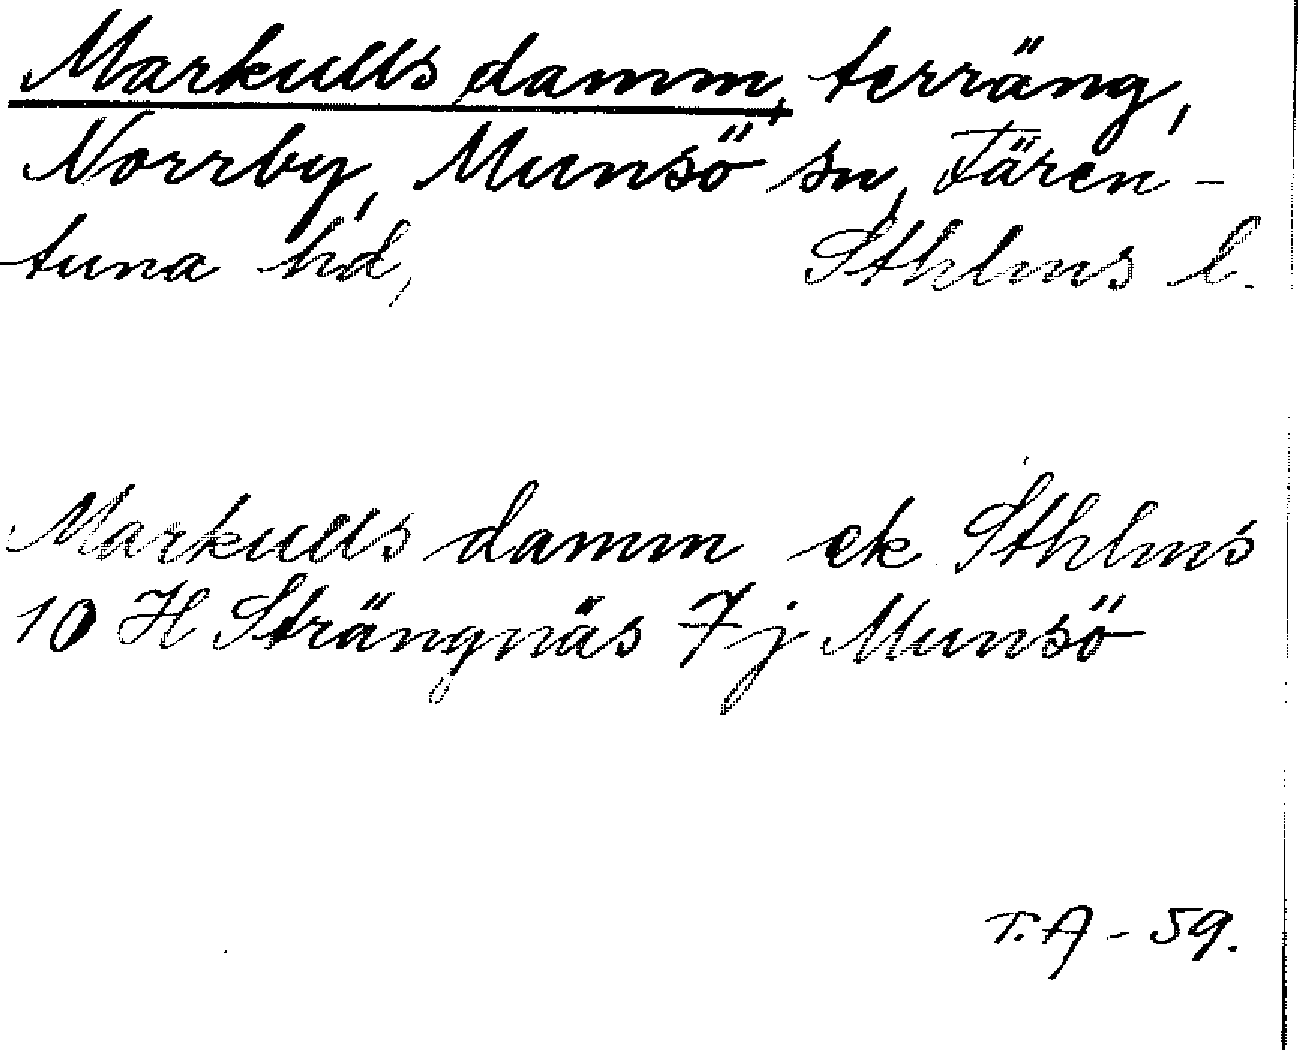 Markulls damm, terräng,
Norrby, Munsö sn, Fären-
tuna hd, Sthlms l.
Markulls damm ek Sthlms
10 H Strängnäs 7j Munsö
T.A - 59.